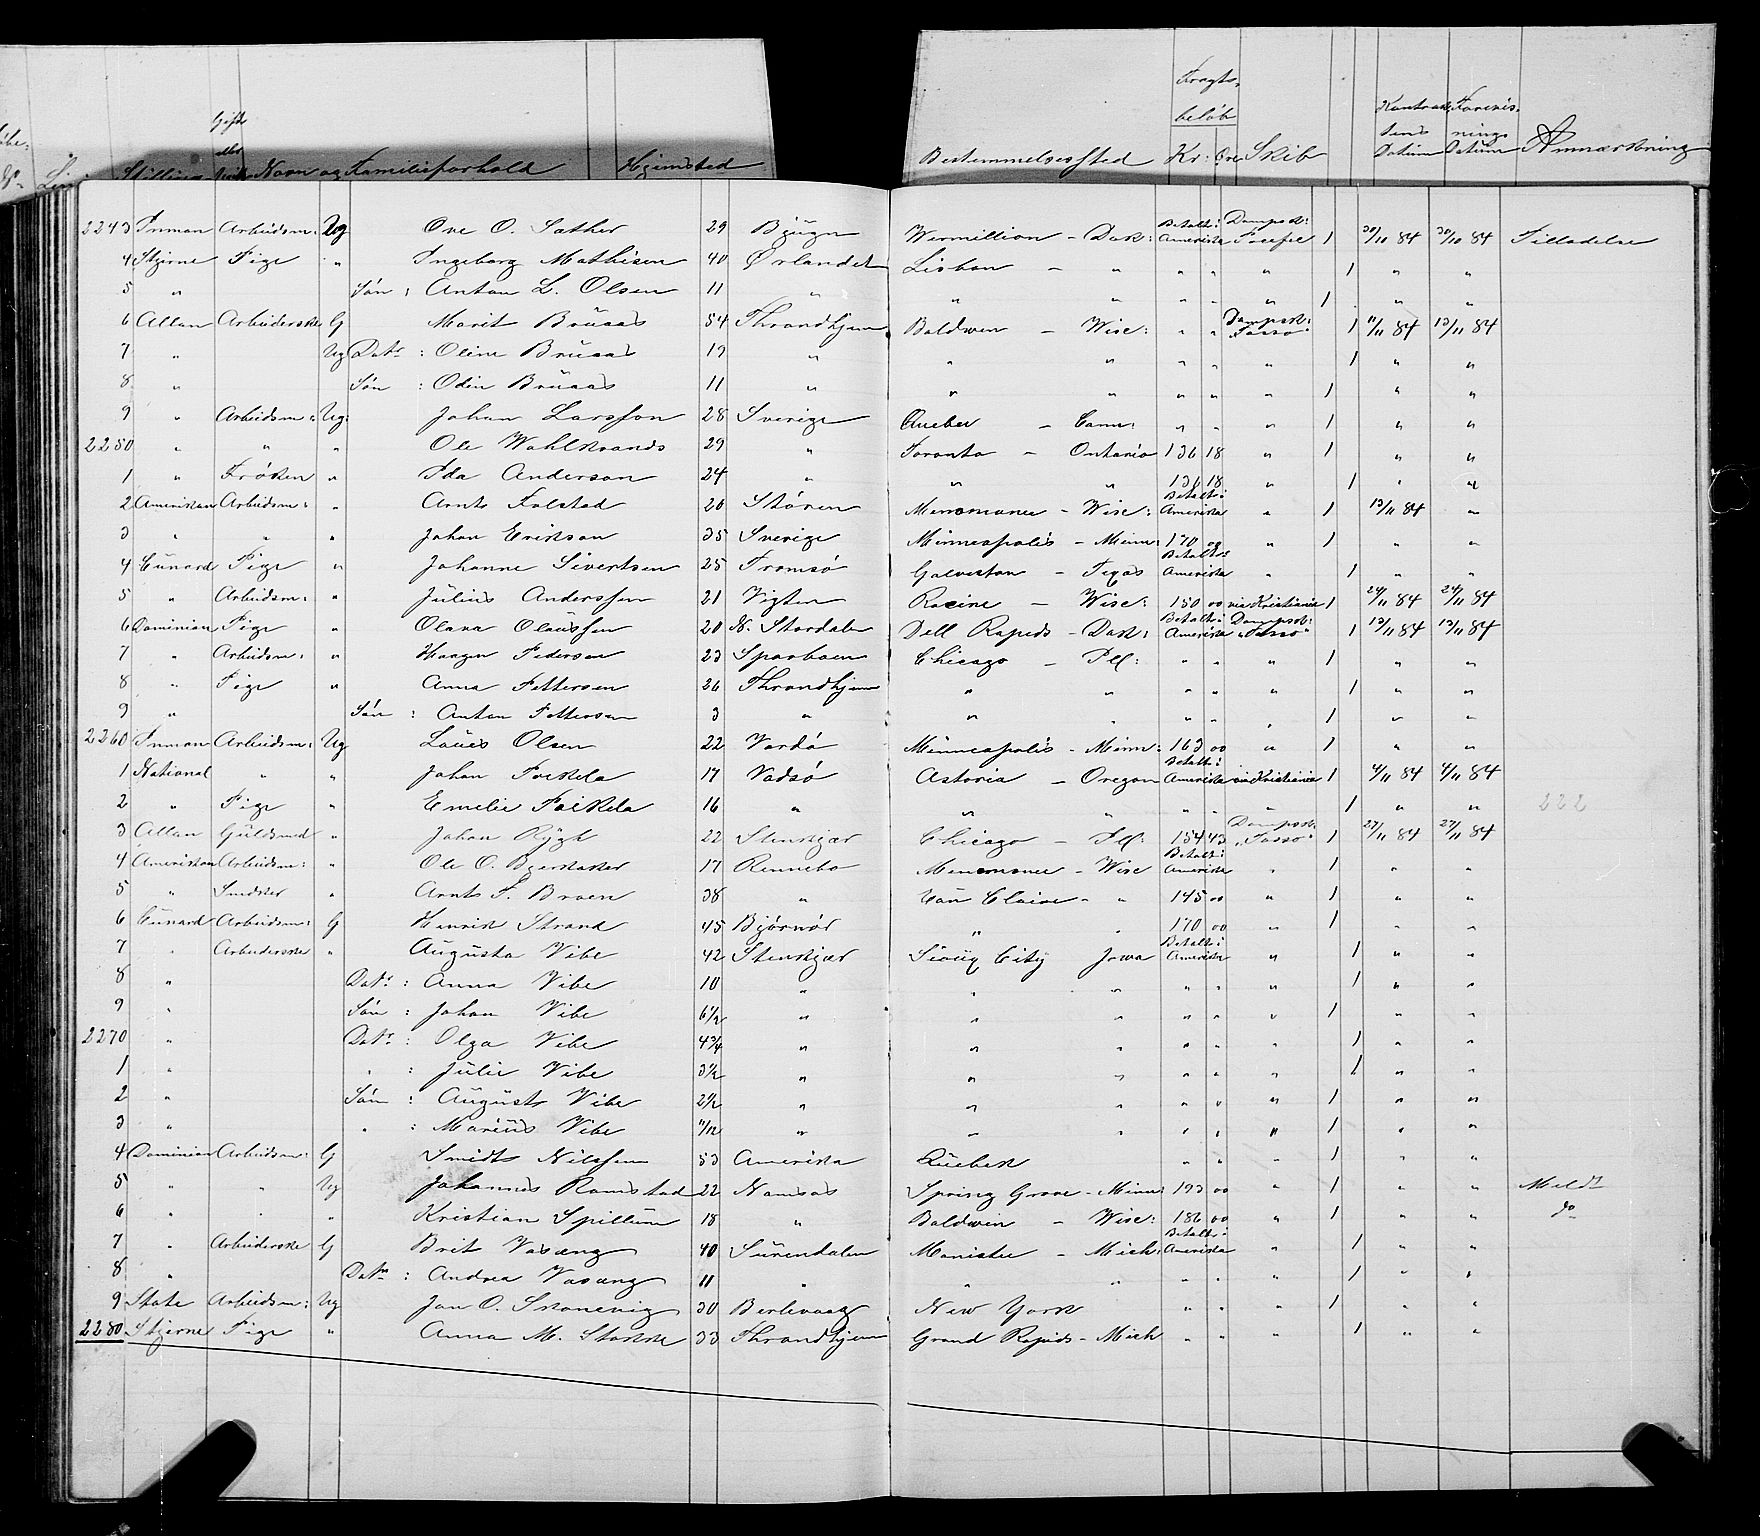 Gift eller Fragts- beløb Kontraktens Datum Forevisnings Datum
Linie Stilling Navn og Familieforhold Hjemsted Bestemmelsessted Kr: Øre Skib Anmærkning
2243 Inman Arbeidsm: Ug Ove O. Sæther 29 Bjugn Wermillion - Dak: Betalt i Amerika Dampsk: 1 30/10 84 Tilladelse
4 Stjerne Pige " Ingeborg Mathisen 40 Ørlandet Lisbon - " " " " 1 " "
5 " Søn : Anton L. Olsen 11 " " " " " " 1 " "
6 Allan Arbeiderske G Marit Bruaas 54 Throndhjem Baldwin - Wisc: " " Dampsk: Tasso 1 11/11 84 13/11 84
7 " Ug Datr : Oline Bruaas 19 " " " " " " 1 " "
8 " Søn : Odin Bruaas 11 " " " " " " 1 " "
9 " Arbeidsm: Ug: Johan Larsson 28 Sverige Quebec - Cana: " " " 1 " "
2250 " " " Ole Wahlstrands 29 " Toronto - Ontario 136 18 " 1 " "
1 " Frøken " Ida Anderson 24 " " " 136 18 " 1 " "
2 Amerikan Arbeidsm: " Arnt Folstad 20 Støren Menomonee - Wisc: Betalt i Amerika " 1 13/11 84 "
3 " " " Johan Erikson 35 Sverige Minneapolis - Minn: 170 00 " 1 " "
4 Cunard Pige " Johanne Sivertsen 25 Tromsø Galveston - Texas Betalt i Amerika " 1 " "
5 " Arbeidsm: " Julius Anderssen 21 Vigten Racine - Wisc: 150 00 via Kristiania 1 24/11 84 24/11 84
6 Dominion Pige " Olava Olaussen 20 N. Stordalen Dell Rapids - Dak: Betalt i Amerika Dampsk: "Tasso" 1 13/11 84 13/11 84
7 " Arbeidsm: " Haagen Pedersen 23 Sparboen Chicago - Ill: " " " 1 " "
8 " Pige " Anna Pettersen 26 Throndhjem " " " " 1 " "
9 " Søn : Anton Pettersen 3 " " " " " " 1 " "
2260 Inman Arbeidsm: Ug Louis Olsen 22 Vardø Minneapolis - Minn: 163 00 " 1 " "
1 National " " Johan 17 Vadsø Astoria - Oregon Betalt i Amerika via Kristiania 1 4/11 84 4/11 84
2 " Pige " Emelie 16 " " " " " " 1 " " 222
3 Allan Guldsmed " Johan Rygh 22 Stenkjær Chicago - Ill: 154 43 Dampsk: "Tasso" 1 27/11 84 27/11 84
4 Amerikan Arbeidsm: " Ole O. Bjerkaker 17 Rennebo Menomonee - Wisc Betalt i Amerika " 1 " "
5 " Snedker " Arnt F. Broen 38 " Eau Claire - " 145 00 " 1 " "
6 Cunard Arbeidsm: G Henrik Strand 45 Bjørnør " " 170 00 " 1 " "
7 " Arbeiderske " Augusta Vibe 42 Stenkjær Sioux City Jowa Betalt i Amerika " 1 " "
8 " Datr : Anna Vibe 10 " " " " " " 1 " "
9 " Søn : Johan Vibe 6 1/2 " " " " " 1 " "
2270 " Datr : Olga Vibe 4 3/4 " " " " " " 1 " "
1 " " : Julie Vibe 3 1/2 " " " " " " 1 " "
2 " Søn : August Vibe 2 1/2 " " " " " " 1 " "
3 " " : Marius Vibe 11/12 " " " " " " 1 " "
4 Dominion Arbeidsm: G Smidt Nilssen 53 Amerika Quebek " " " 1 " "
5 " " Ug Johannes Ramstad 22 Namsos Spring Grove - Minn: 193 00 " 1 " " Meldt
6 " " " Kristian Spillum 18 " Baldwin - Wisc: 186 00 " 1 " " do
7 " Arbeiderske G Brit Vasæng 40 Surendalen Manistee - Mich: Betalt i Amerika " 1 " "
8 " Datr : Andrea Vasæng 11 " " " " " " 1 " "
9 State Arbeidsm: Ug Jon O. Skonevig 30 Berlevaag New York " " " 1 " "
2280 Stjerne Pige " Anna M. Stokke 33 Throndhjem Grand Rapids - Mich " " " 1 " "